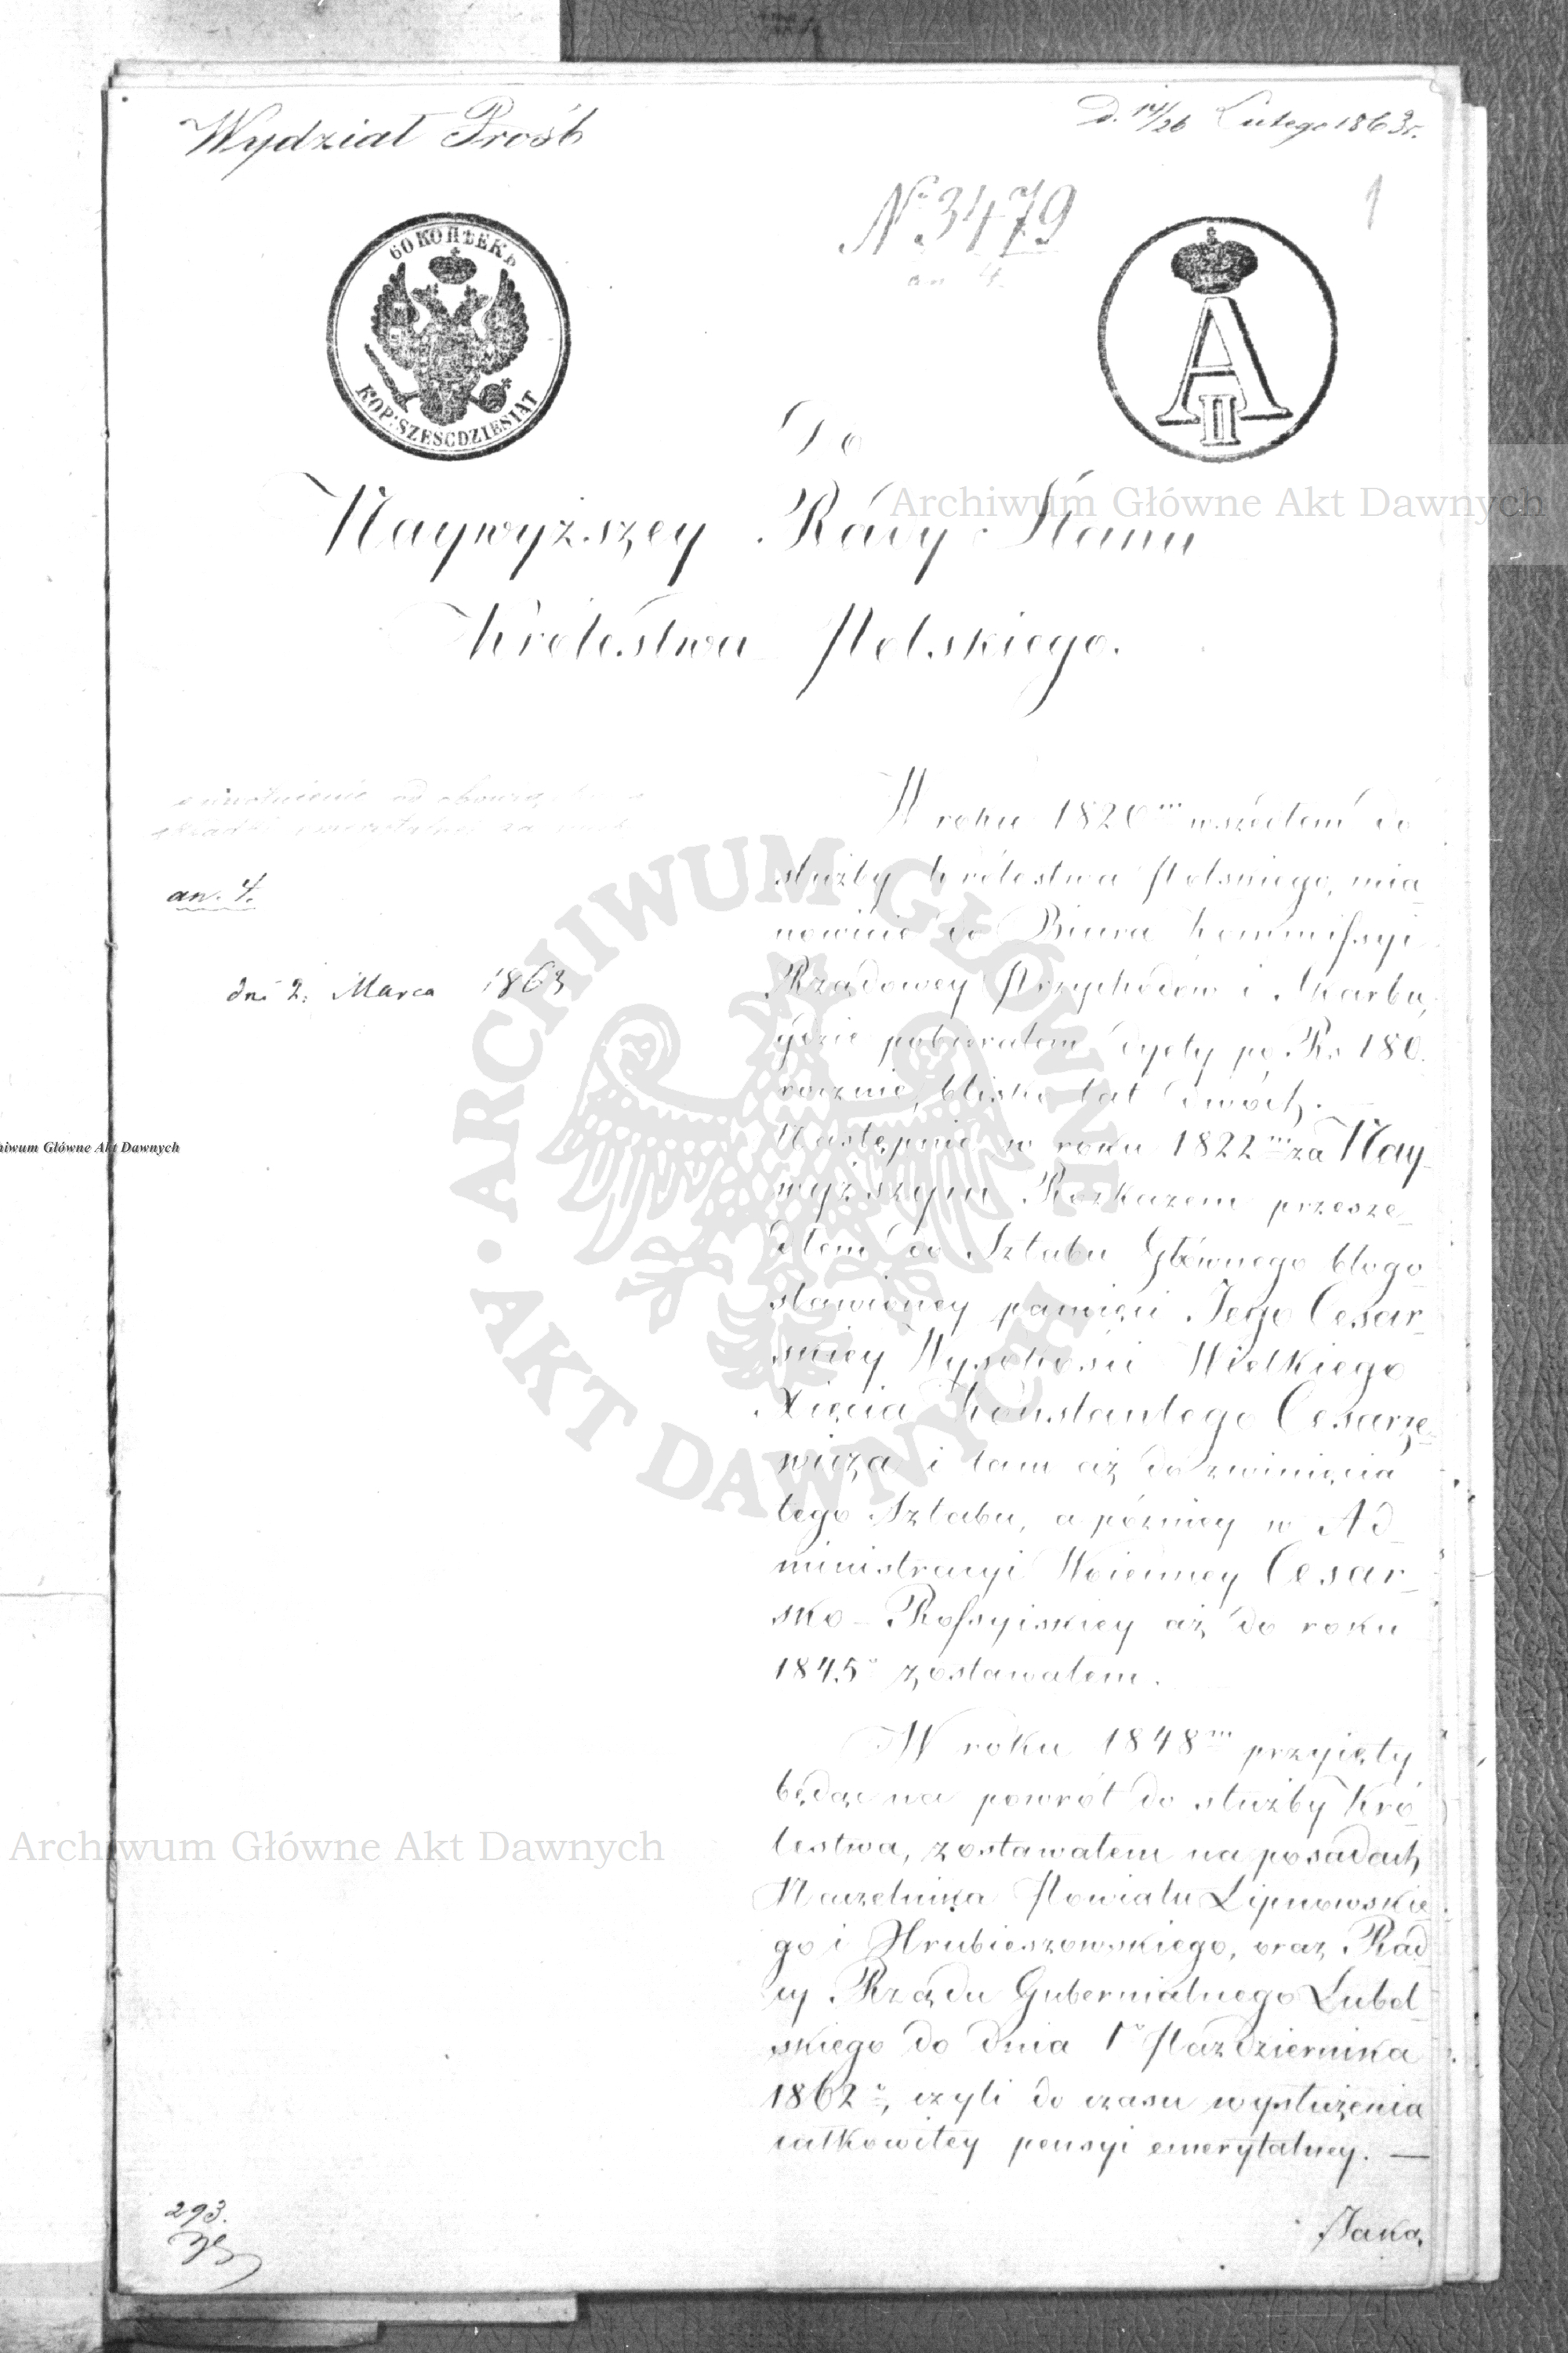 Wydział Prośb
D. 14/26 Lutego 1863 r.
№ 3479
an 4.
1
60 КОПѢЕКЪ
KOP: SZEŚCDZIESIĄT
A II
Do
Naywyższey Rády Stanu
Królestwa Polskiego.
Archiwum Główne Akt Dawnych
o uwolnienie od
an. 4.
dni 2: Marca 1863
W roku 1820m wszedłem do
służby Królestwa Polskiego, mia_
nowicie do Biura Kommissyi
Rządowey Przychodów i Skarbu,
gdzie pobierałem dyety po Rs 180.
rocznie, blisko lat dwóch. —
Następnie w roku 1822m za Nay_
wyższym Rozkazem przesze_
dłem do Sztabu Głównego błogo_
sławioney pamięci Jego Cesar_
skiey Wysokości Wielkiego
Xięcia Konstantego Cesarze_
wicza i tam aż do zwinięcia
tego Sztabu, a pózniey w Ad_
ministracyi Woienney Cesar_
sko - Rossyiskiey aż do roku
1845o zostawałem.
W roku 1848m przyięty
będąc na powrót do służby Kró_
lestwa, zostawałem na posadach
Naczelnika Powiatu Lipnowskie_
go i Hrubieszowskiego, oraz Rad_
cy Rządu Gubernialnego Lubel_
skiego do dnia 1o Października
1862o, czyli do czasu wysłużenia
całkowitey pensyi emerytalney. —
Jaką
293.
ARCHIWUM GŁÓWNE AKT DAWNYCH
hiwum Główne Akt Dawnych
Archiwum Główne Akt Dawnych